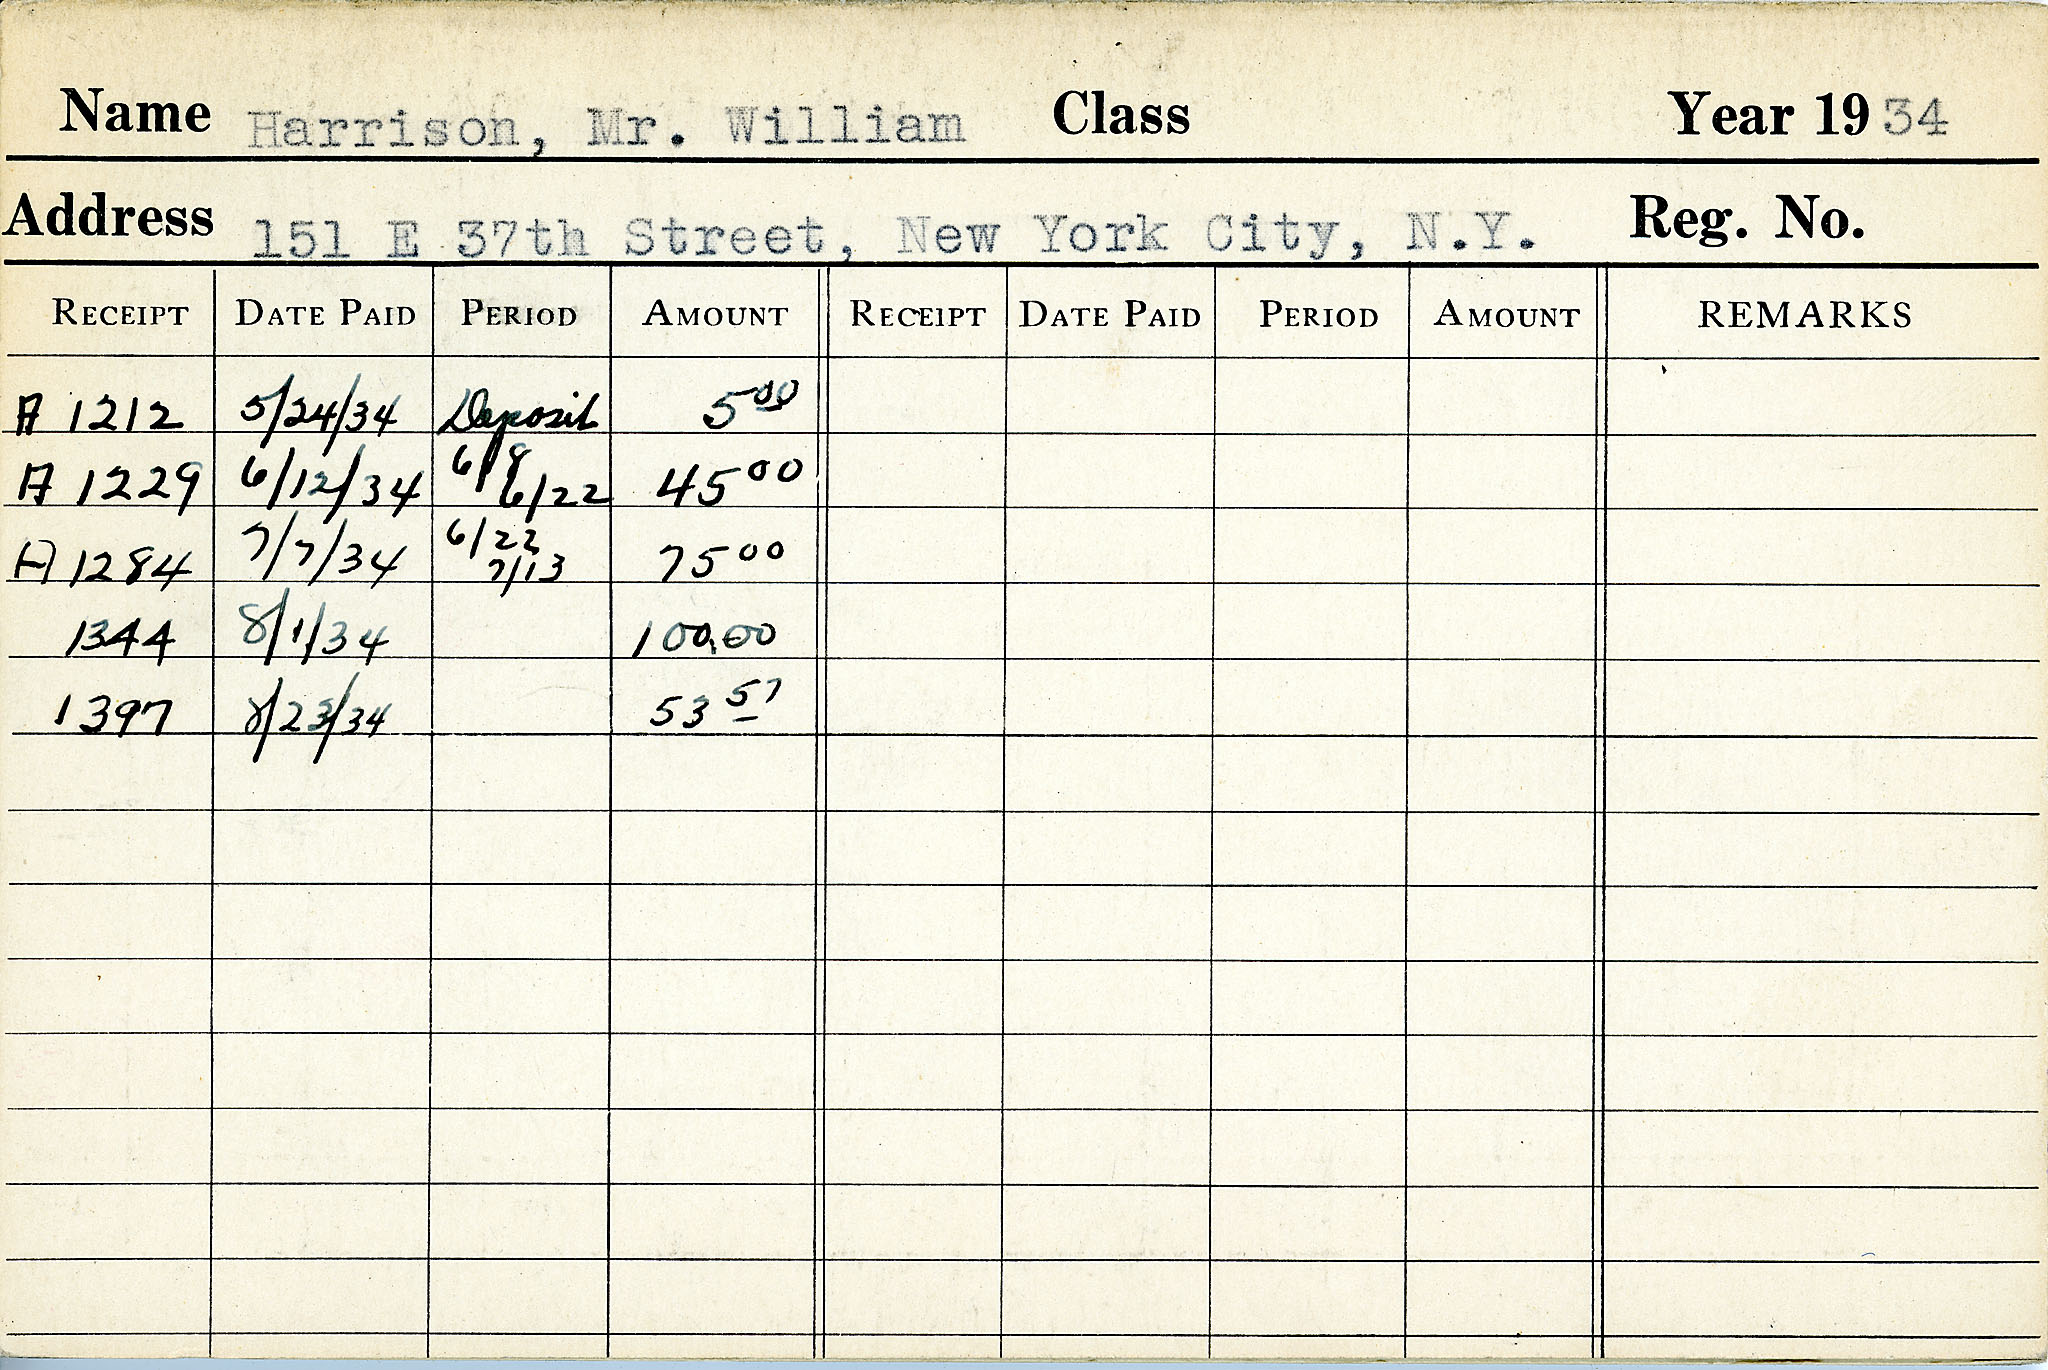 Name Harrison, Mr. William Class Year 1934
Address 151 E 37th Street, New York City, N.Y. Reg. No.
RECEIPT DATE PAID PERIOD AMOUNT RECEIPT DATE PAID PERIOD AMOUNT REMARKS
A 1212 5/24/34 Deposit 5 00
A 1229 6/12/34 6/8 6/22 45 00
A 1284 7/7/34 6/22 7/13 75 00
1344 8/1/34 100.00
1397 8/23/34 53 57